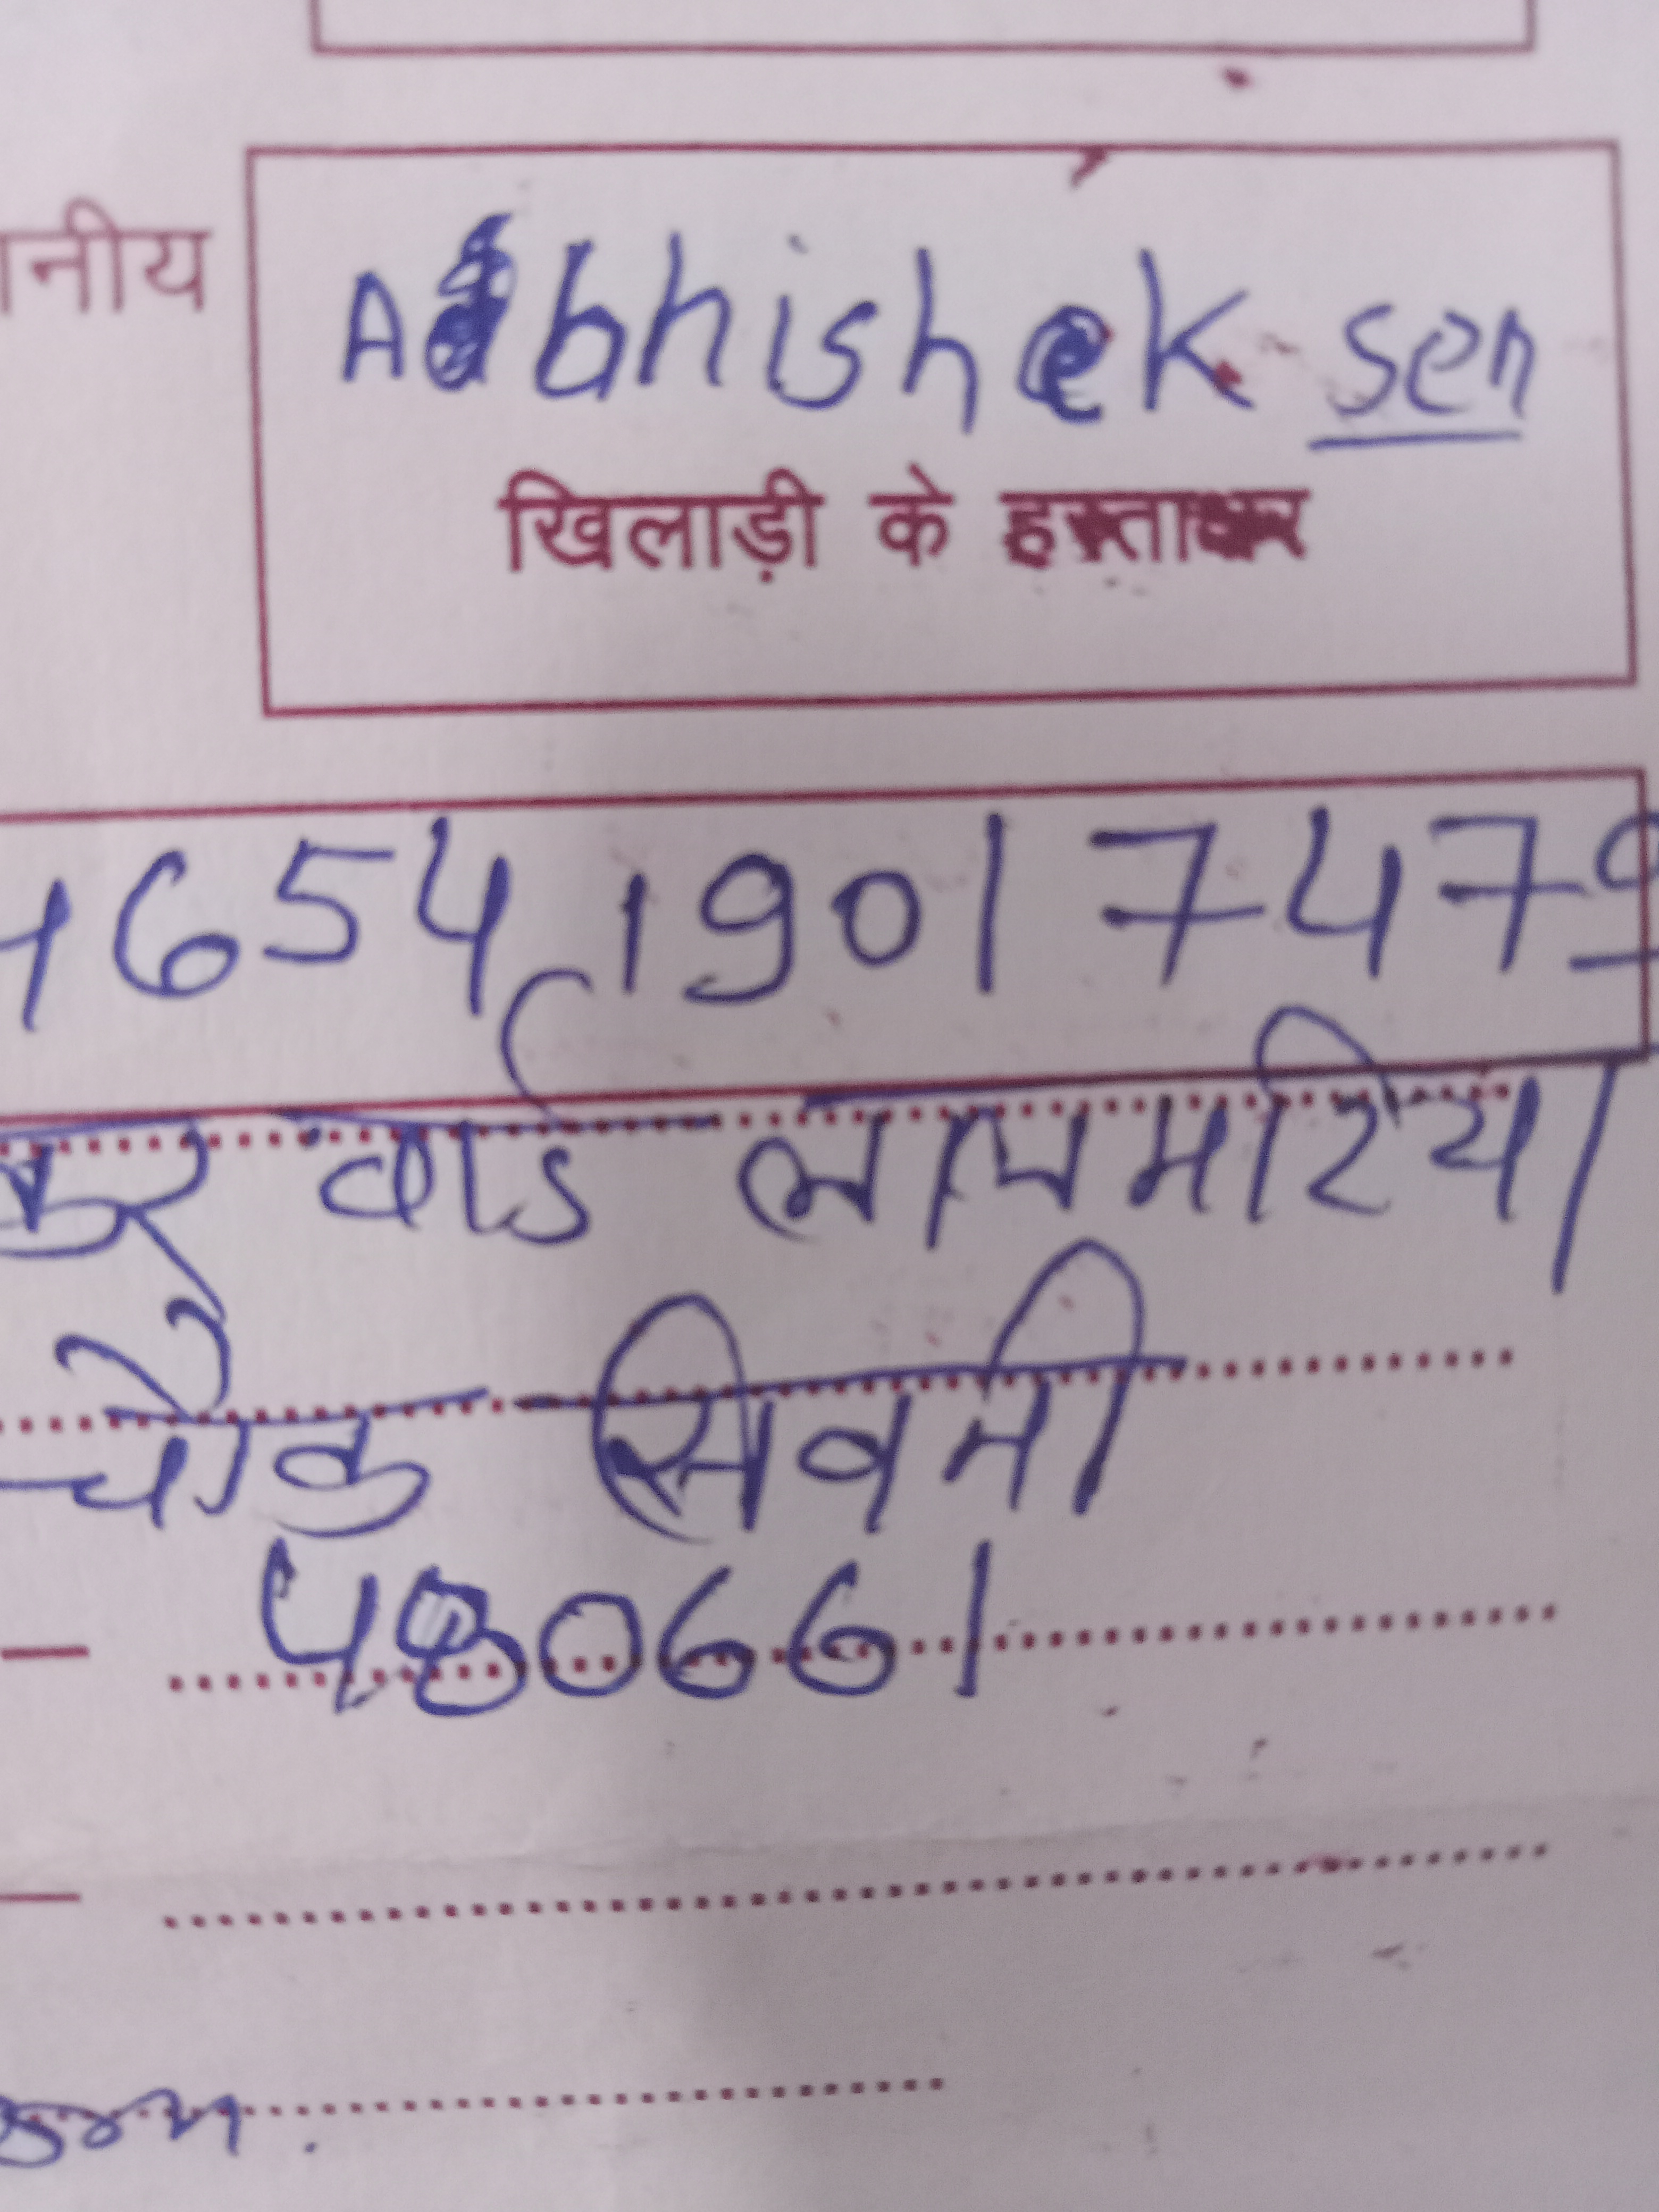 नीय
Abhishek sen
खिलाड़ी के हस्ताक्षर
4654 1901 7479
वार्ड
चौक सिवनी
480661